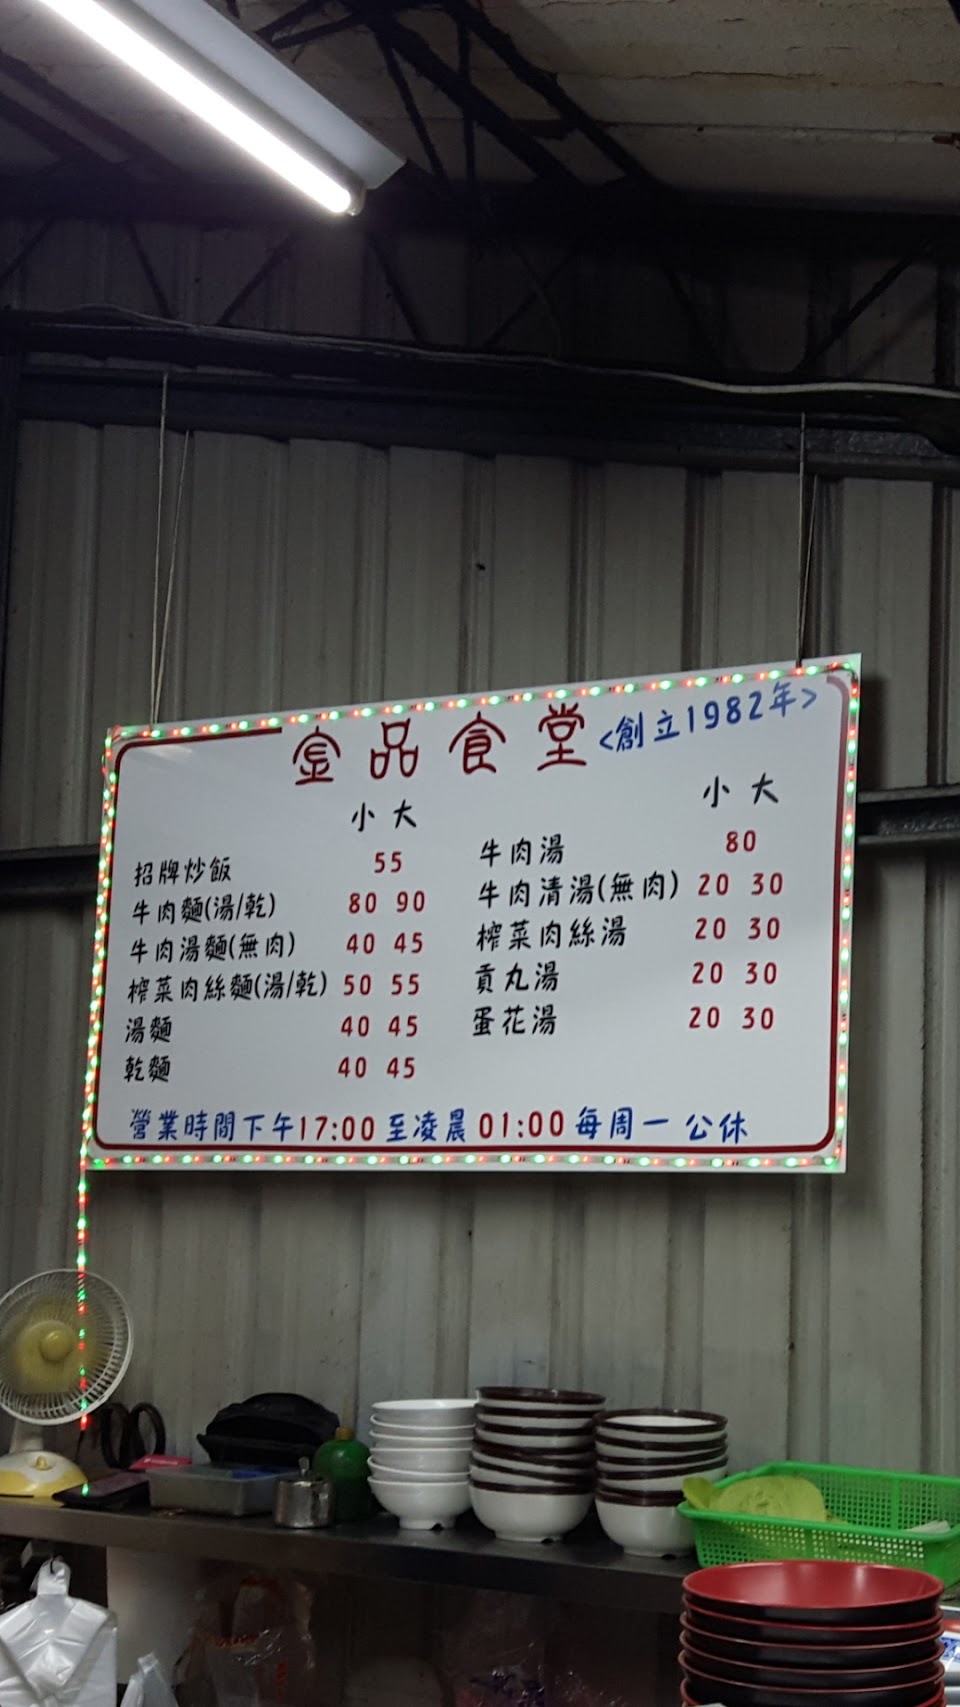 金品食堂 <創立1982年>
小 大
招牌炒飯 55
牛肉麵(湯/乾) 80 90
牛肉湯麵(無肉) 40 45
榨菜肉絲麵(湯/乾) 50 55
湯麵 40 45
乾麵 40 45
小 大
牛肉湯 80
牛肉清湯(無肉) 20 30
榨菜肉絲湯 20 30
貢丸湯 20 30
蛋花湯 20 30
營業時間下午17:00至凌晨01:00每周一 公休